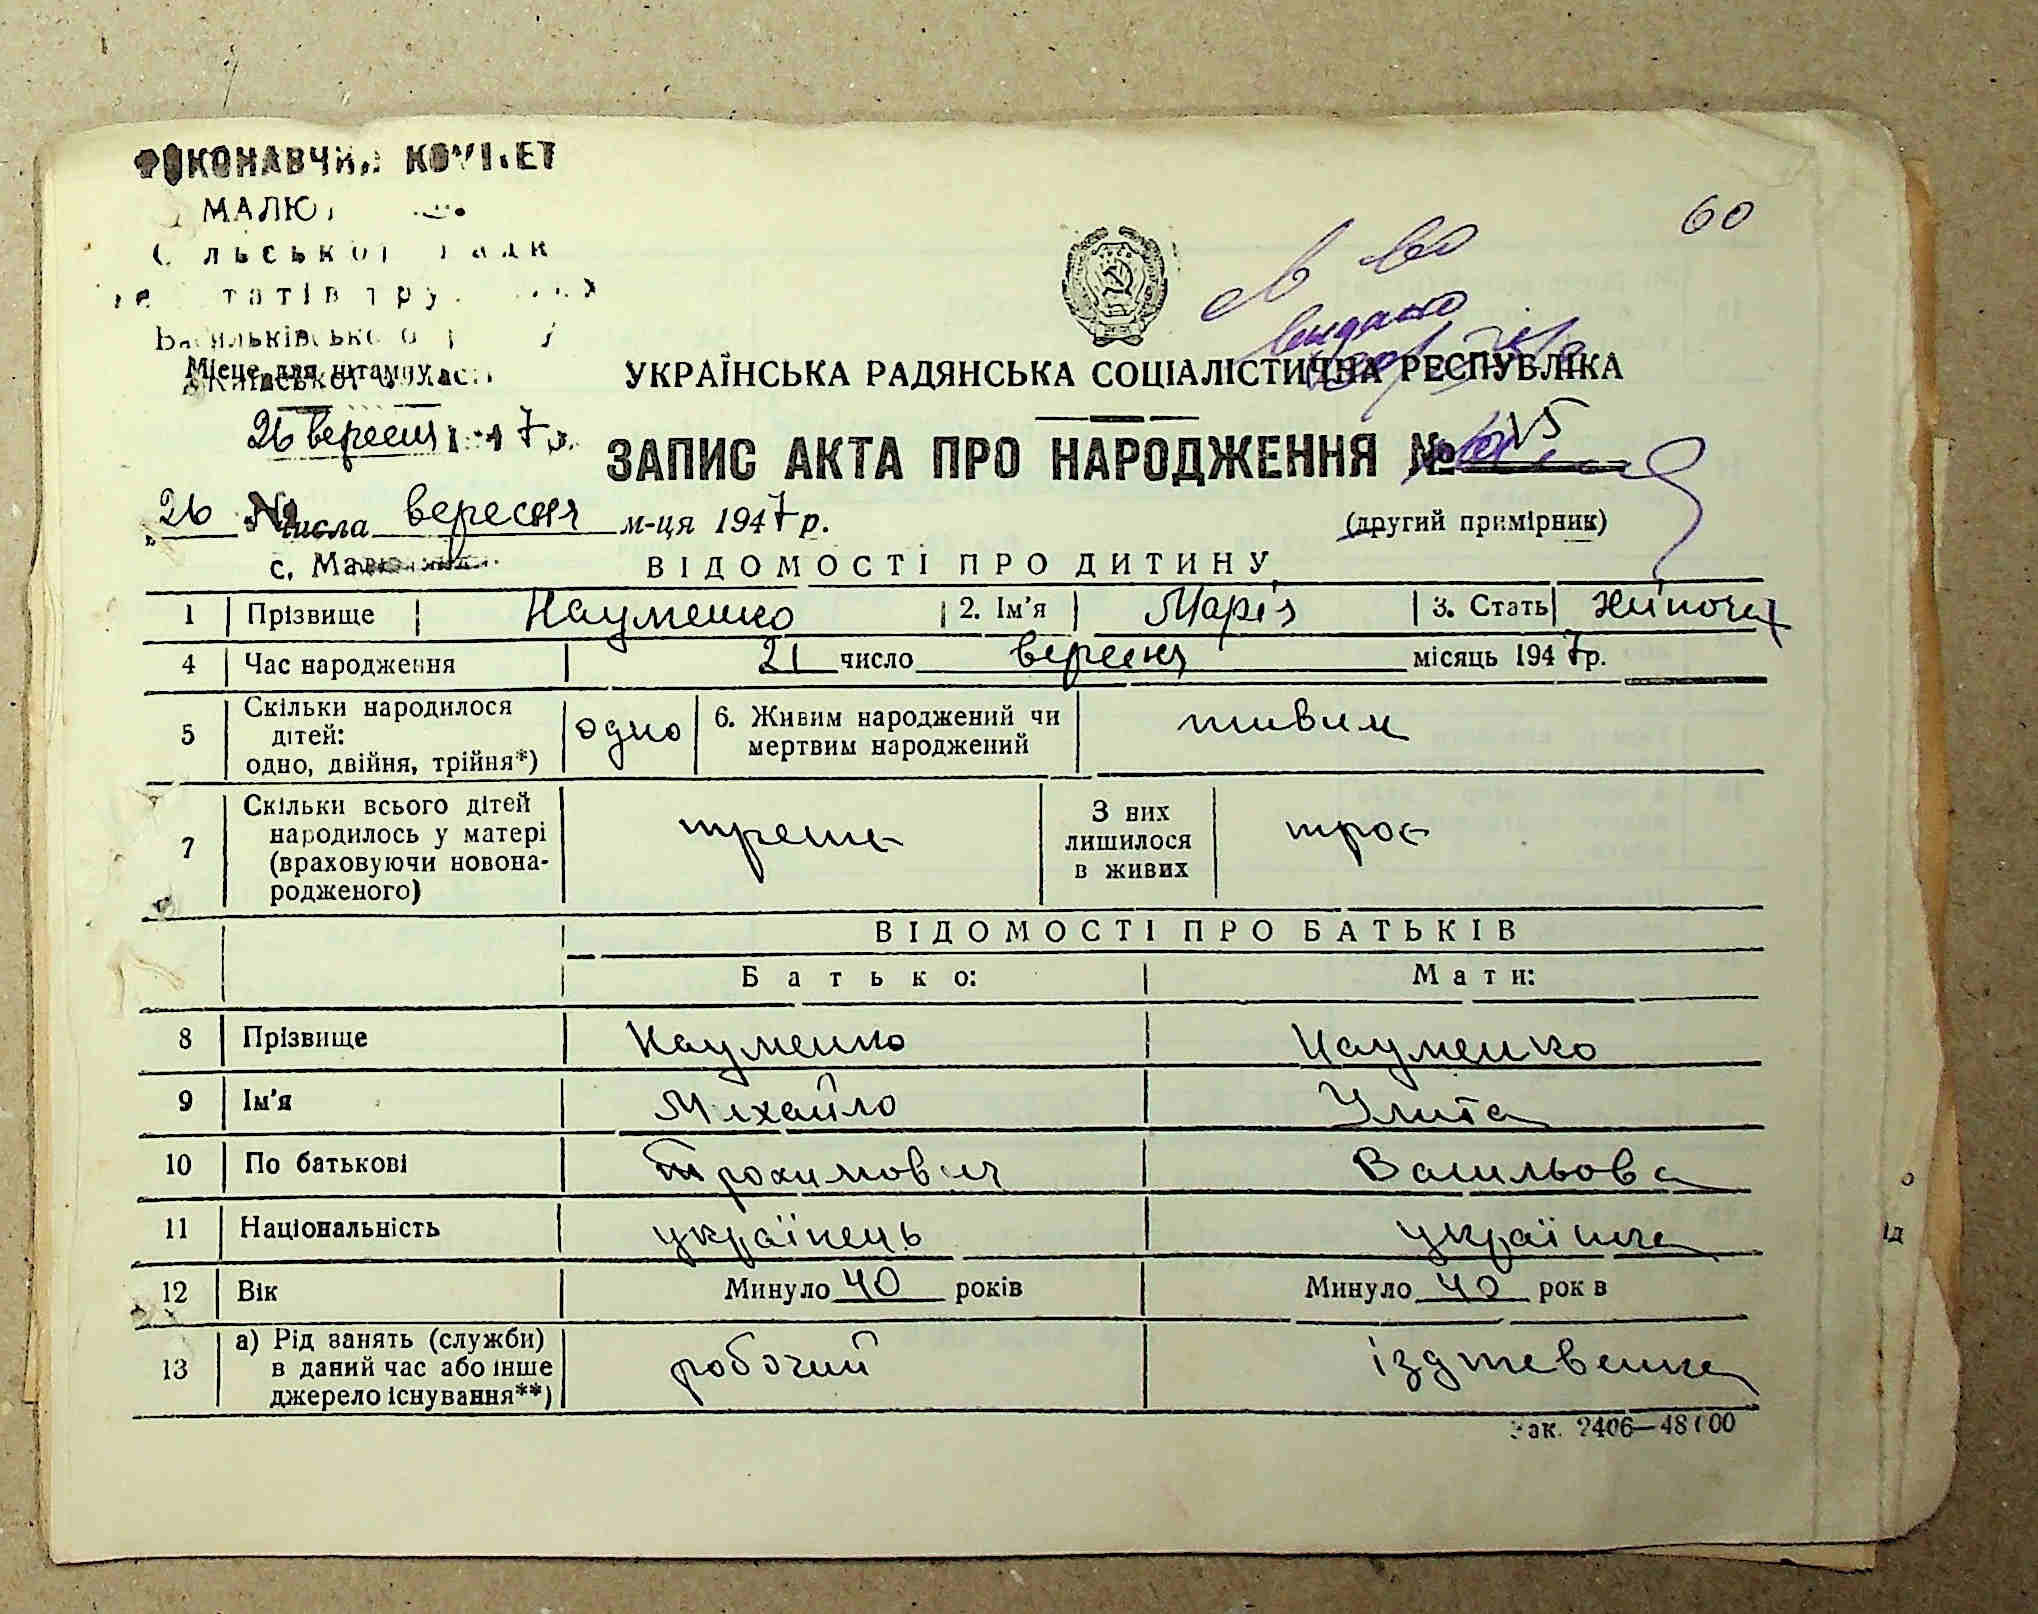 60
МАЛЮ
видано
Місце для штампу
УКРАЇНСЬКА РАДЯНСЬКА СОЦІАЛІСТИЧНА РЕСПУБЛІКА
26 вересня 7 р.
ЗАПИС АКТА ПРО НАРОДЖЕННЯ № 15
"26" числа вересня м-ця 1947 р.
(другий примірник)
с.
ВІДОМОСТІ ПРО ДИТИНУ
1 Прізвище Науменко 2. Ім'я Марія 3. Стать жіноча
4 Час народження 21 число вересня місяць 1947 р.
5 Скільки народилося дітей: одно, двійня, трійня*) одно 6. Живим народжений чи мертвим народжений живим
7 Скільки всього дітей народилось у матері (враховуючи новонародженого) третє З них лишилося в живих троє
ВІДОМОСТІ ПРО БАТЬКІВ
Батько: Мати:
8 Прізвище Науменко Науменко
9 Ім'я Михайло Улита
10 По батькові Трохимович Васильовна
11 Національність українець українка
12 Вік Минуло 40 років Минуло 40 років
13 а) Рід занять (служби) в даний час або інше джерело існування**) робочий іздивенка
Зак. 2406—48000